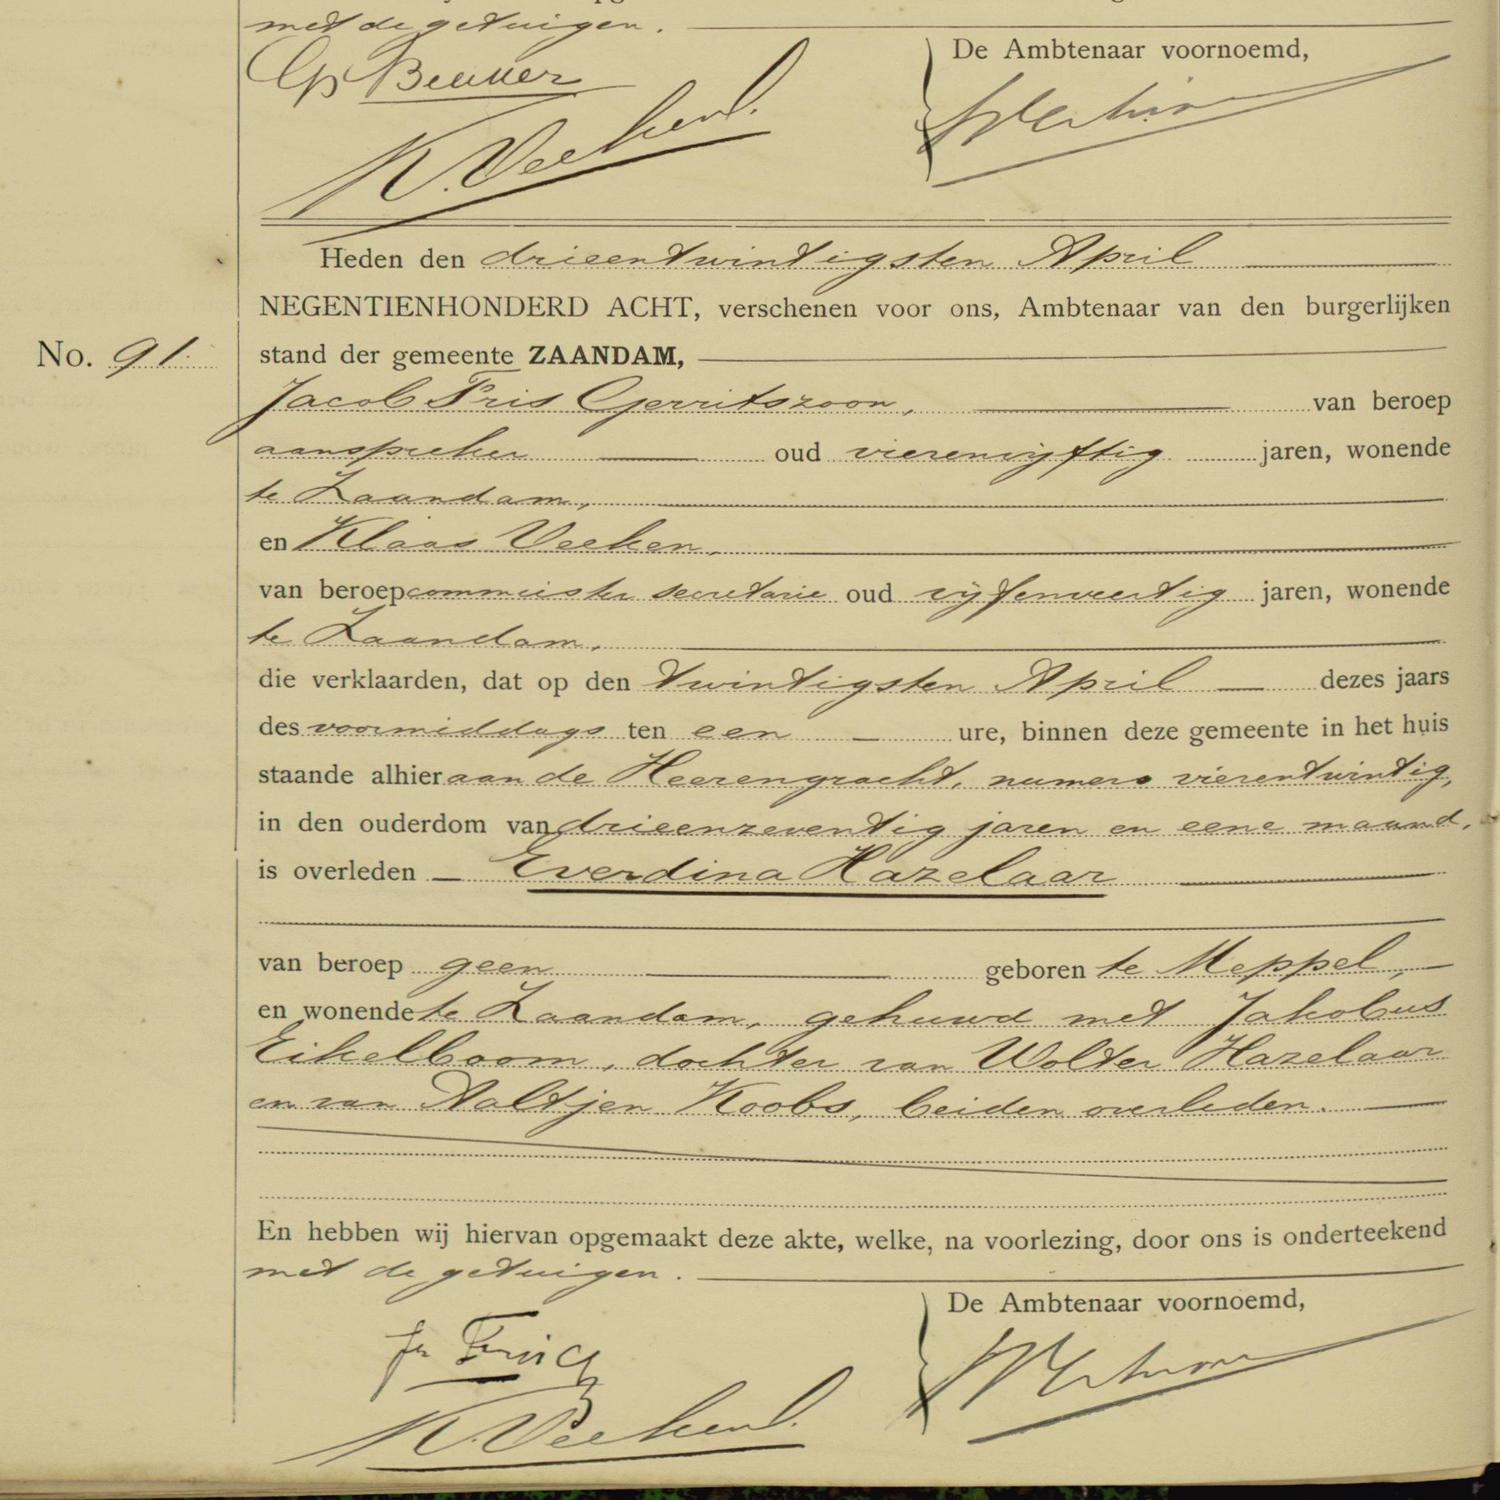 met de getuigen.
De Ambtenaar voornoemd,
K. Veeken
Heden den drieentwintigsten April
NEGENTIENHONDERD ACHT, verschenen voor ons, Ambtenaar van den burgerlijken
No. 91.
stand der gemeente ZAANDAM,
Jacob Fris Gerritszoon, van beroep
aanspreker oud vierenvijftig jaren, wonende
te Zaandam,
en Klaas Veeken,
van beroep commies ter secretarie oud vijfenveertig jaren, wonende
te Zaandam,
die verklaarden, dat op den twintigsten April dezes jaars
des voormiddags ten een ure, binnen deze gemeente in het huis
staande alhier aan de Heerengracht, numero vierentwintig,
in den ouderdom van drieenzeventig jaren en eene maand,
is overleden Everdina Hazelaar
van beroep geen geboren te Meppel,
en wonende te Zaandam, gehuwd met Jakobus
Eikelboom, dochter van Wolter Hazelaar
en van Aaltjen Koobs, beiden overleden.
En hebben wij hiervan opgemaakt deze akte, welke, na voorlezing, door ons is onderteekend
met de getuigen.
De Ambtenaar voornoemd,
Jb Fris Gz
K. Veeken